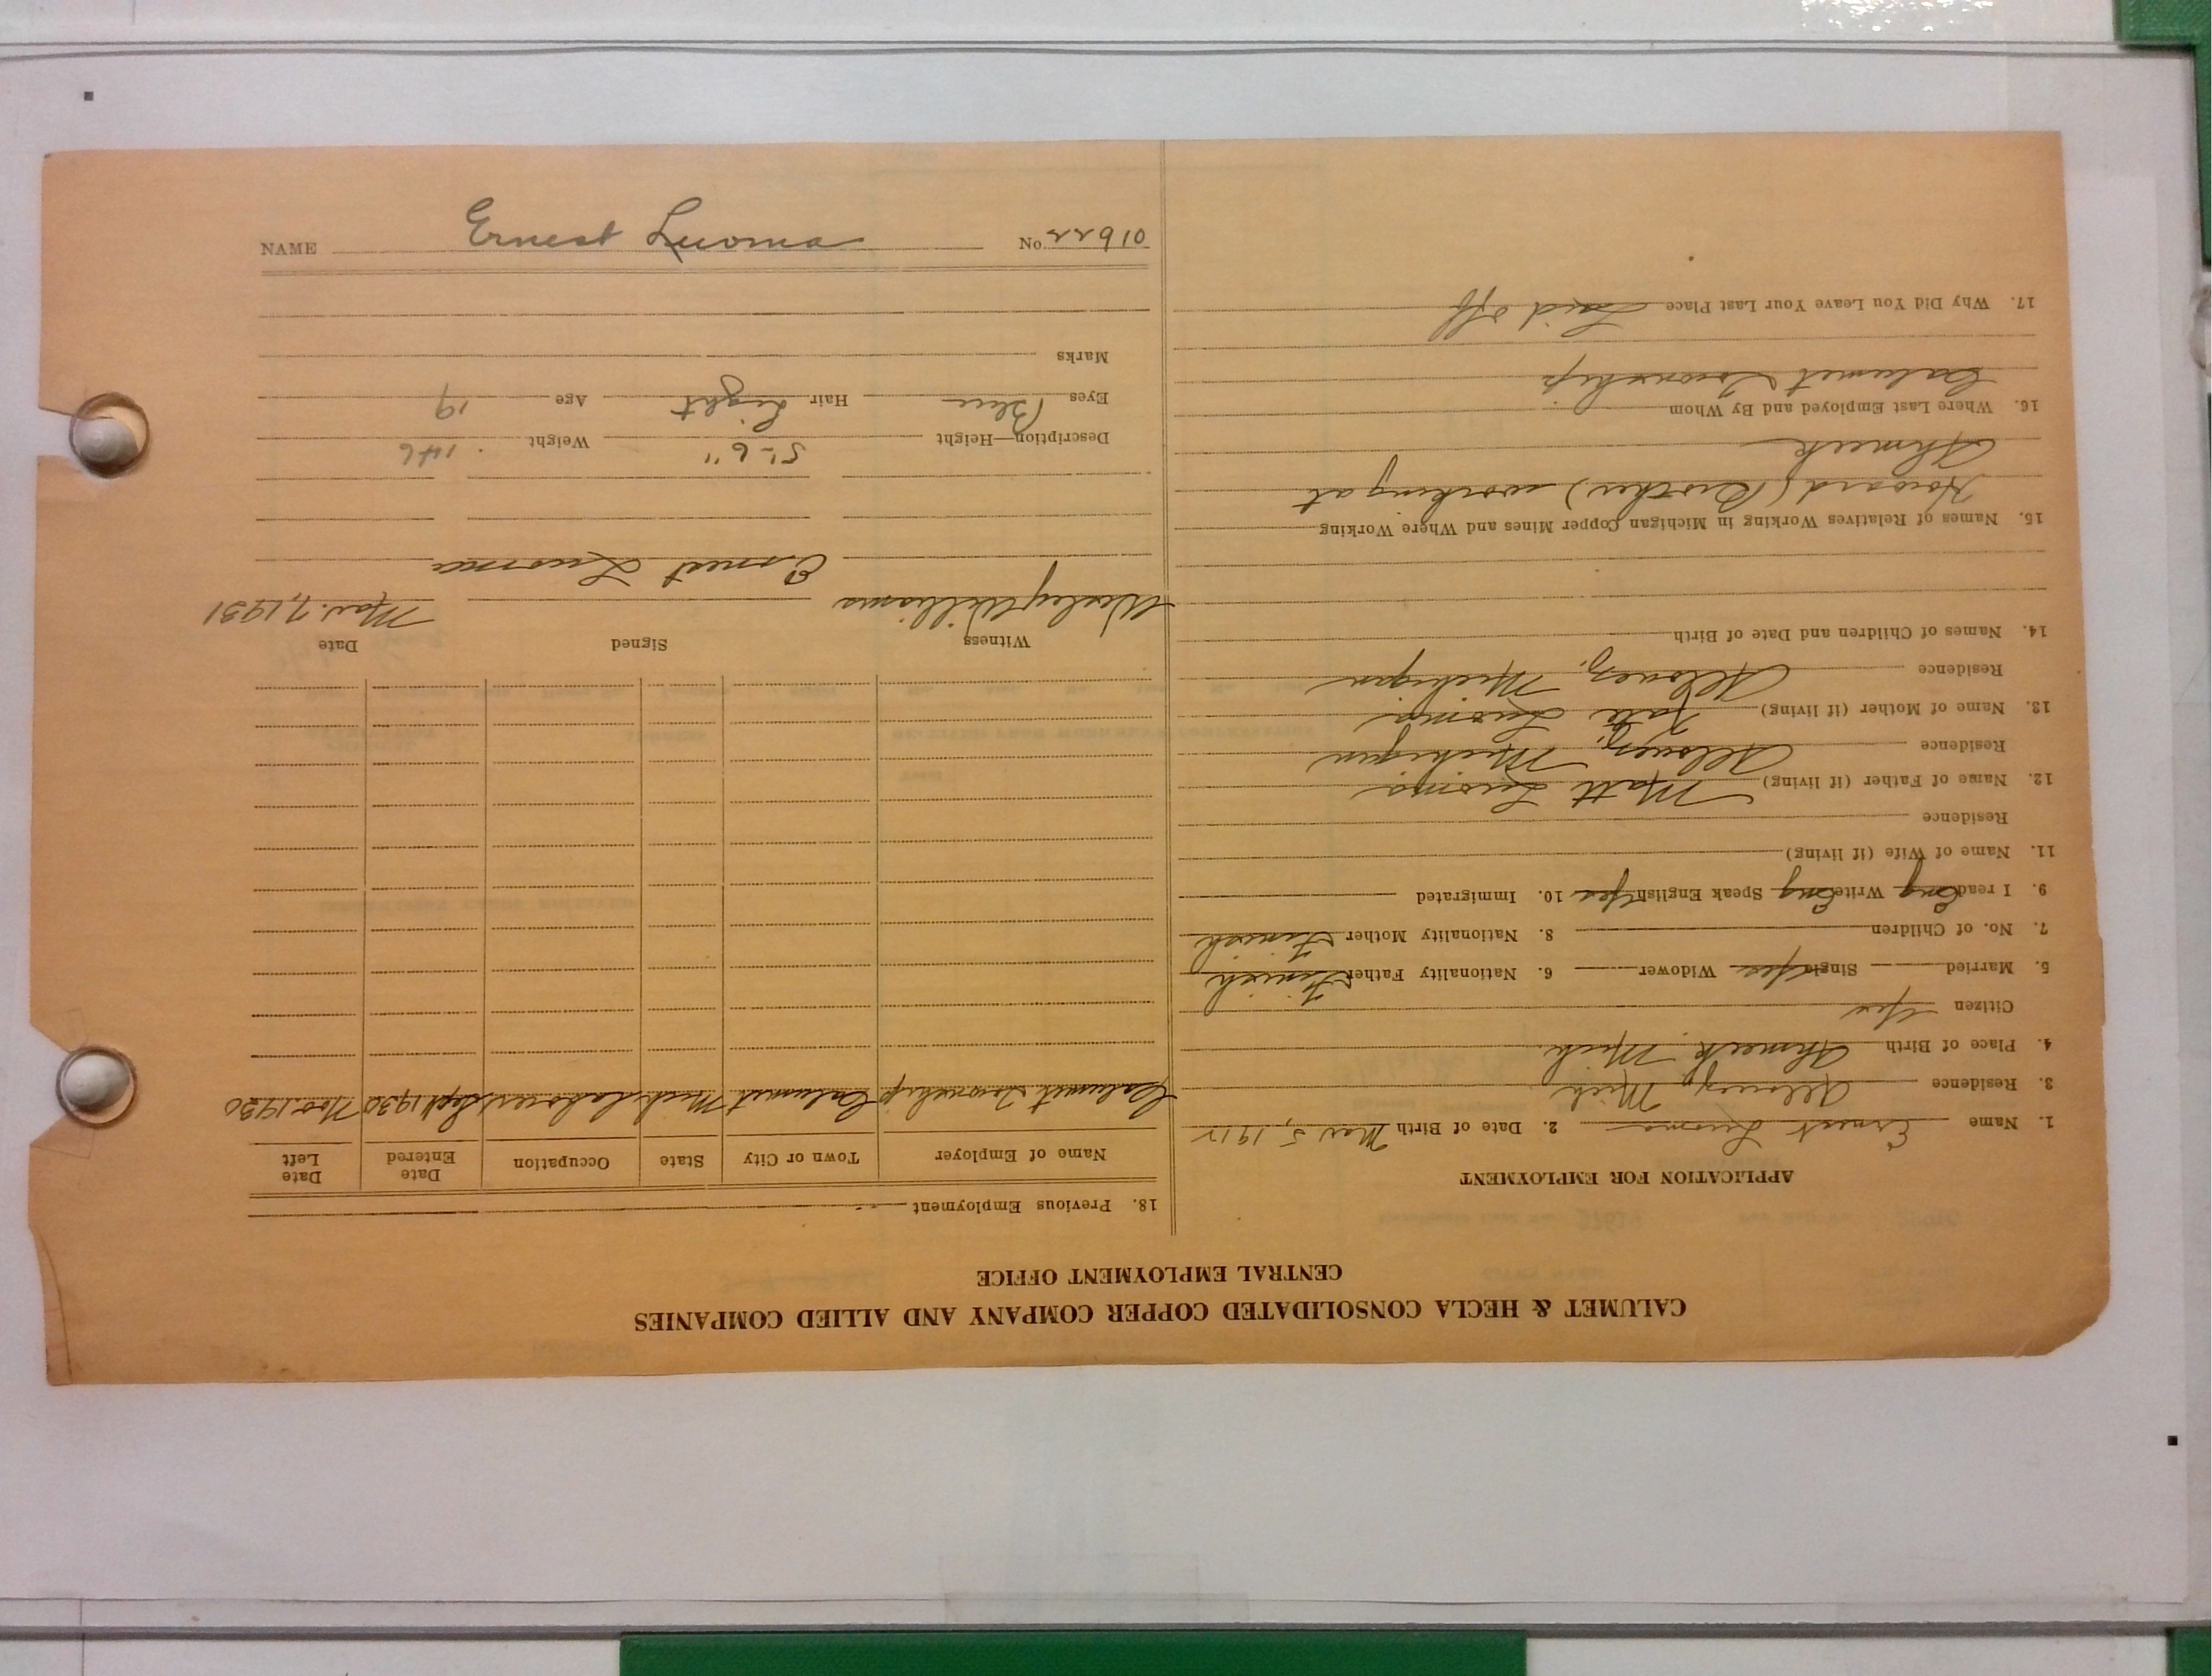 CALUMET & HECLA CONSOLIDATED COPPER COMPANY AND ALLIED COMPANIES
CENTRAL EMPLOYMENT OFFICE
APPLICATION FOR EMPLOYMENT
1. Name Ernest Luoma 2. Date of Birth Mar 5, 1912
3. Residence Allouez, Mich
4. Place of Birth Ahmeek Mich.
Citizen Yes
5. Married Single Yes Widower 6. Nationality Father Finnish
7. No. of Children 8. Nationality Mother Finnish
9. I read Eng Write Eng Speak English Yes 10. Immigrated
11. Name of Wife (if living)
Residence
12. Name of Father (if living) Matt Luoma
Residence Allouez, Michigan
13. Name of Mother (if living) Luoma
Residence Allouez, Michigan
14. Names of Children and Date of Birth
15. Names of Relatives Working in Michigan Copper Mines and Where Working
Howard (Brother) working at
Ahmeek
16. Where Last Employed and By Whom
Calumet Township
17. Why Did You Leave Your Last Place Laid off
18. Previous Employment
Name of Employer Town or City State Occupation Date Entered Date Left
Calumet Township Calumet Mich Laborer Sept 1930 Nov. 1930
Witness Signed Date
Wesley Williams Mar. 7, 1931
Ernest Luoma
Description—Height 5'-6" Weight 146
Eyes Blue Hair Light Age 19
Marks
NAME Ernest Luoma No